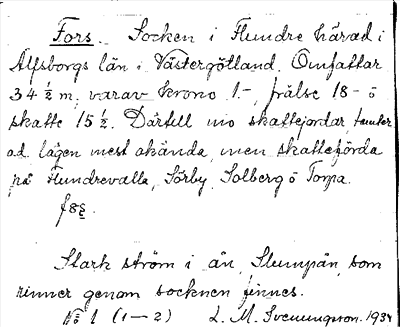 Fors. Socken i Flundre härad i
Älfsborgs län i Västergötland. Omfattar
34 ½ m, varav krono 1.-, frälse 18 - o
skatte 15 ½. Därtill nio skattejordar,
o.d. lägen mest okända, men skatteförda
på Flundrevalla, Sörby, Solberg o Torpa.
Stark ström i ån, Slumpån, som
rinner genom socknen finnes.
No 1 (1-2) L. M. Svenungson. 1934